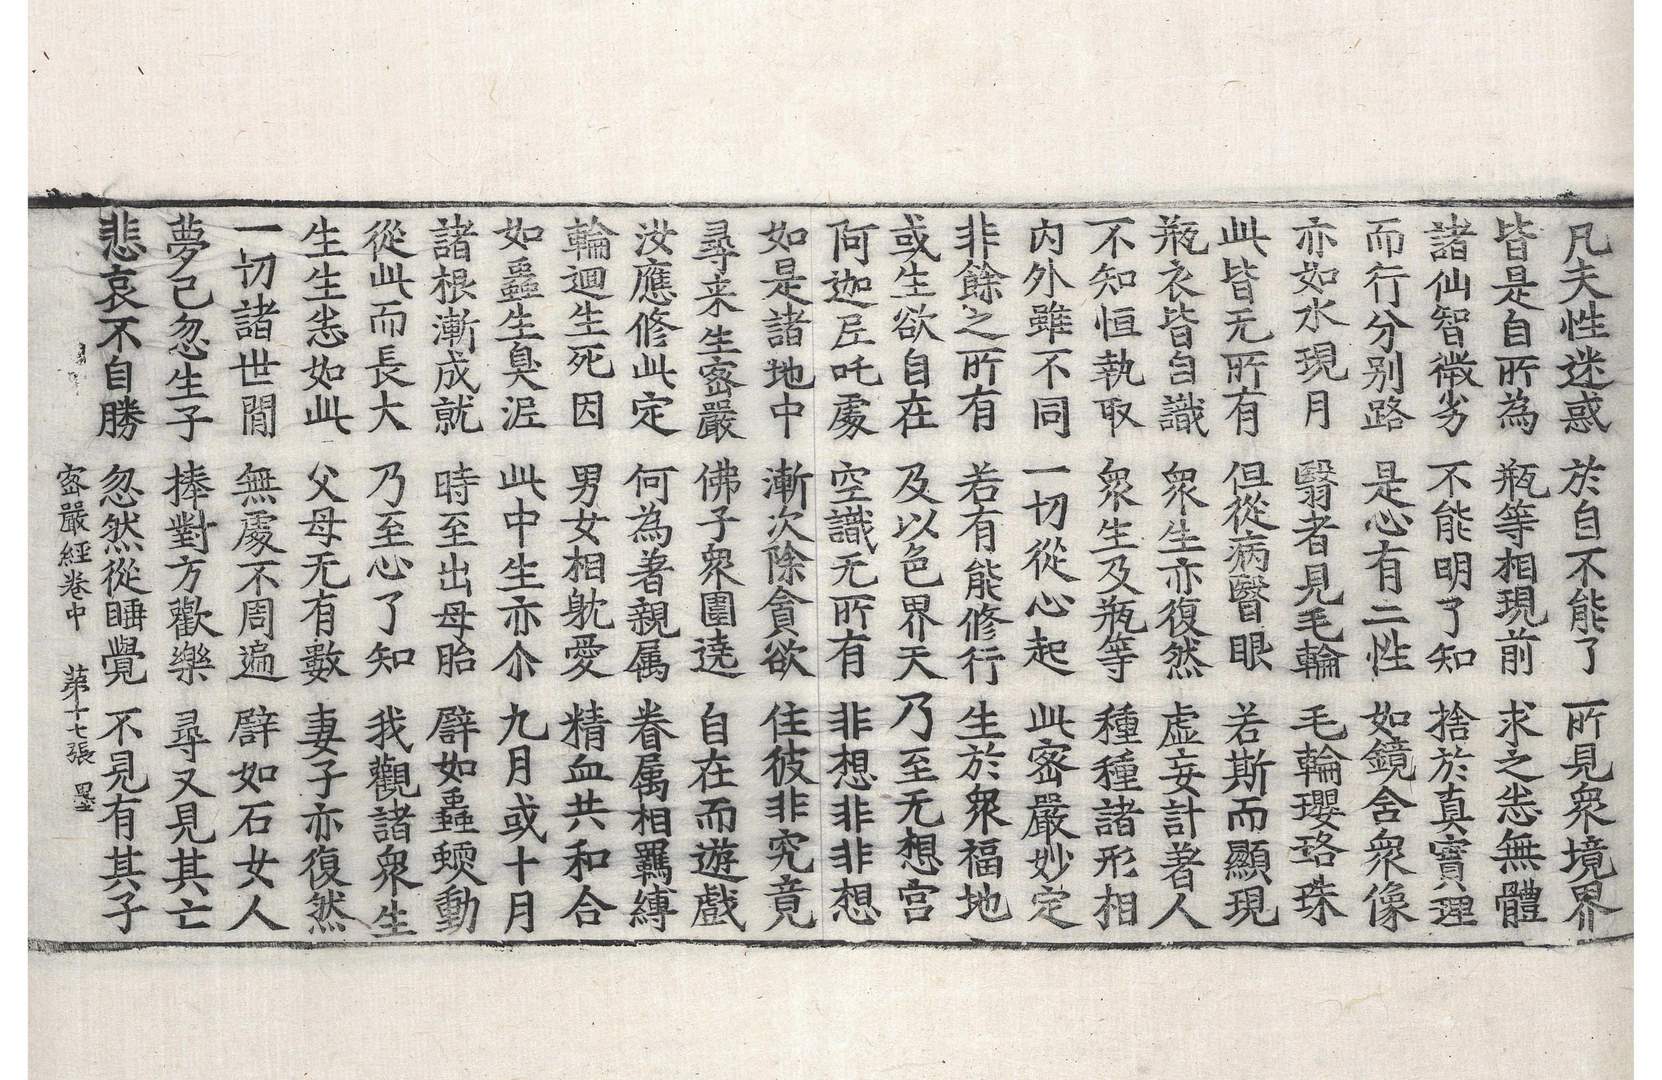 凡夫性迷惑 於自不能了 所見衆境界
皆是自所為 瓶等相現前 求之悉無體
諸仙智微劣 不能明了知 捨於真實理
而行分别路 是心有二性 如鏡含衆像
亦如水現月 翳者見毛輪 毛輪瓔珞珠
此皆无所有 但從病瞖眼 若斯而顯現
瓶衣皆自識 衆生亦復然 虛妄計著人
不知恒執取 衆生及瓶等 種種諸形相
内外雖不同 一切從心起 此密嚴妙定
非餘之所有 若有能修行 生於衆福地
或生欲自在 及以色界天 乃至无想宫
阿迦尼吒處 空識无所有 非想非非想
如是諸地中 漸次除貪欲 住彼非究竟
尋来生密嚴 佛子衆圍遶 自在而遊戲
汝應修此定 何為著親属 眷属相羈縛
輪迴生死因 男女相躭愛 精血共和合
如蟲生臭泥 此中生亦尒 九月或十月
諸根漸成就 時至出母胎 譬如蟲蝡動
從此而長大 乃至心了知 我觀諸衆生
生生悉如此 父母无有數 妻子亦復然
一切諸世間 無處不周遍 譬如石女人
夢已忽生子 捧對方歡樂 尋又見其亡
悲哀不自勝 忽然從睡覺 不見有其子
密嚴經卷中 第十七張 墨